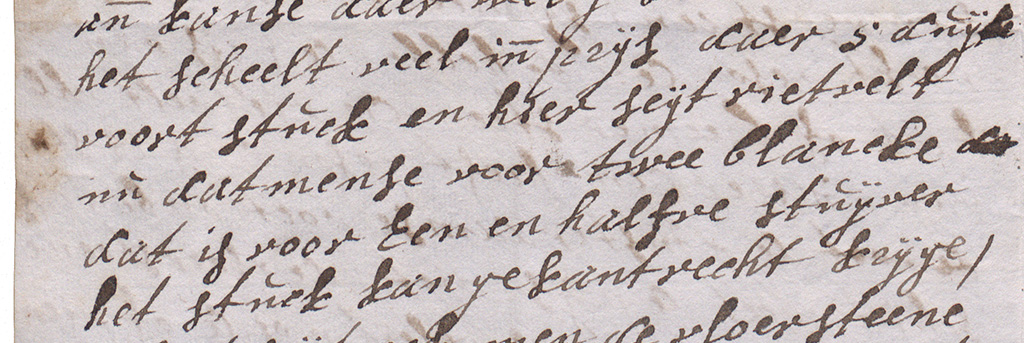 het scheelt veel in̄ prijs daer 5 duijt
voort stuck en hier seijt rietvelt
nu datmense voor twee blancke
dat is voor Een en halfve stuijver
het stuck kan gekantrecht krijge /
men de vloersteene